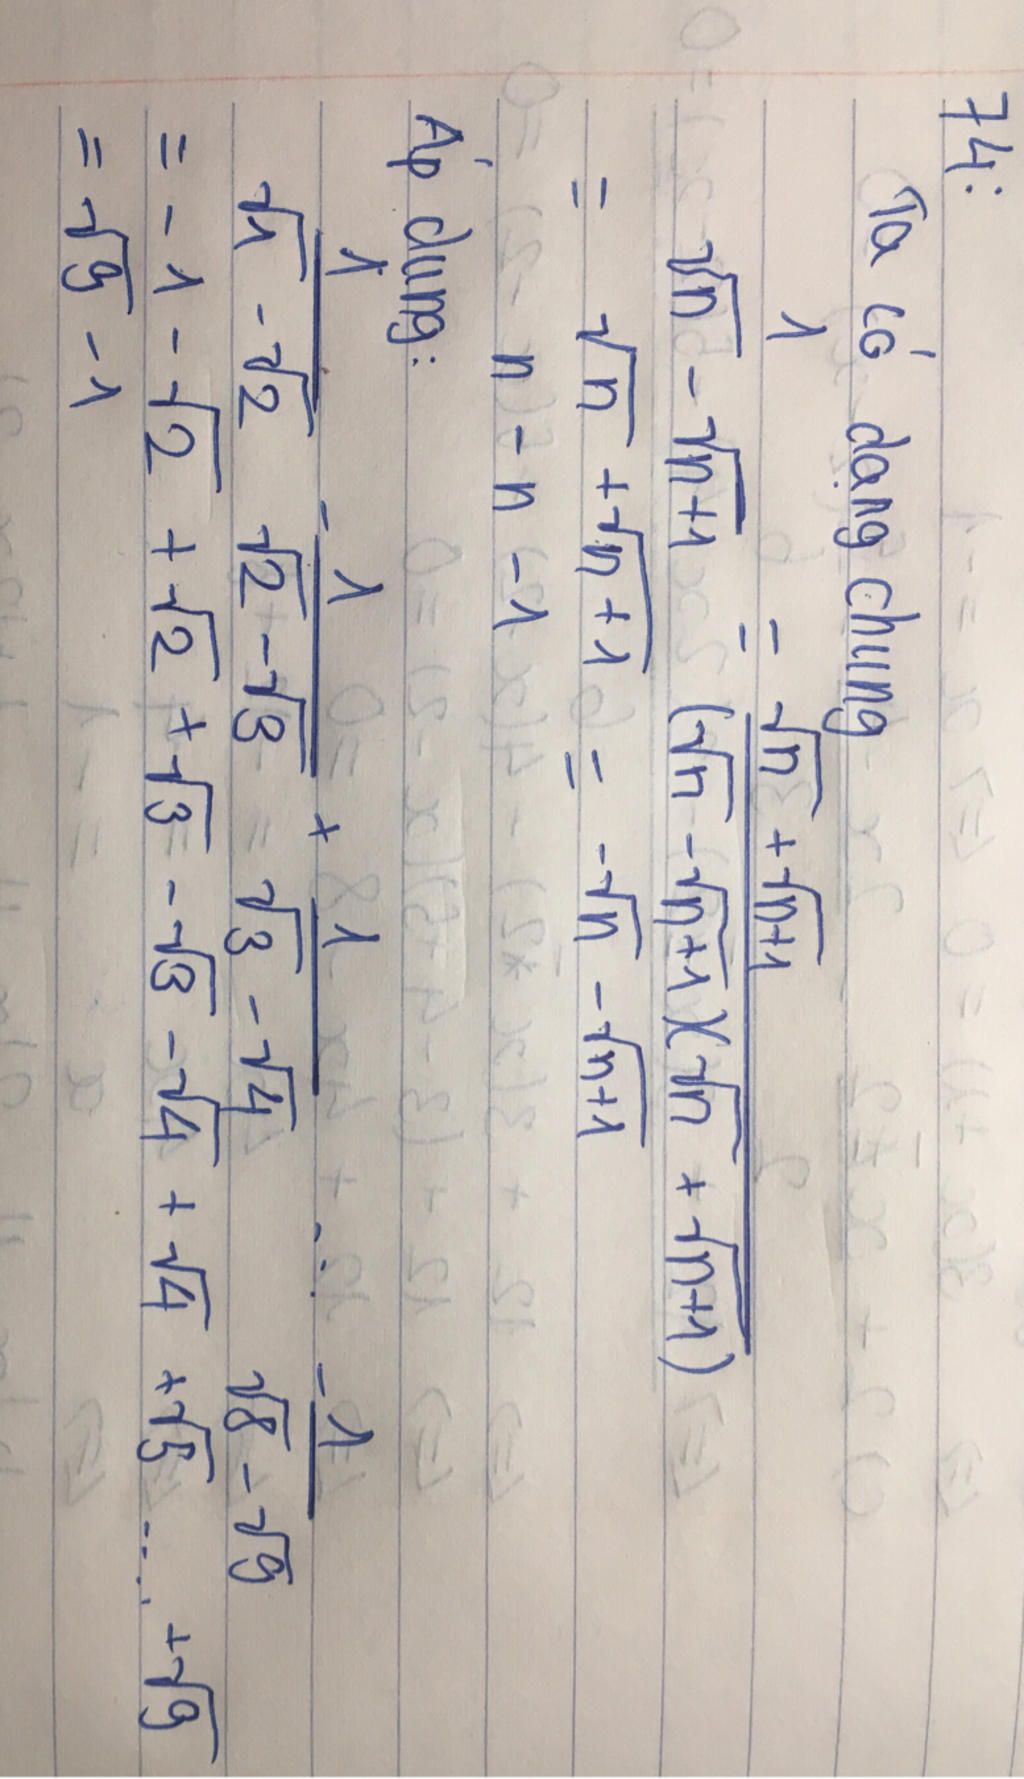 74:
Ta có dạng chung
1/(√n - √(n+1)) = (√n + √(n+1))/((√n - √(n+1))(√n + √(n+1)))
= (√n + √(n+1))/(n - n - 1) = -√n - √(n+1)
Áp dụng:
1/(√1 - √2) - 1/(√2 - √3) + 1/(√3 - √4) ... - 1/(√8 - √9)
= -1 - √2 + √2 + √3 - √3 - √4 + √4 + √5 .... + √9
= √9 - 1